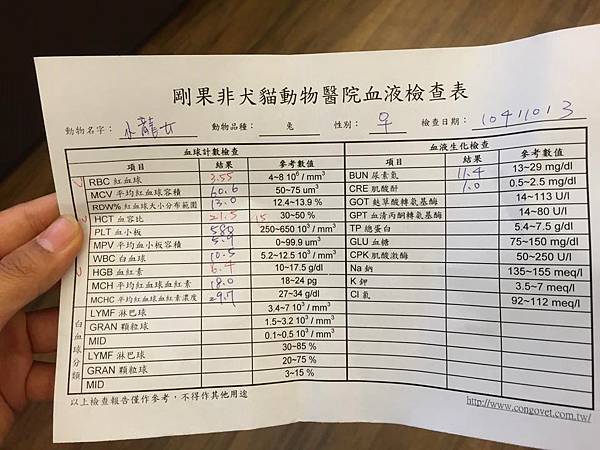 剛果非犬貓動物醫院血液檢查表
動物名字： 小龍女 動物品種： 兔 性別： 早 檢查日期： 10411013
血球計數檢查
項目 結果 參考數值
RBC 紅血球 3.55 4~8 10⁶ / mm³
MCV 平均紅血球容積 60.6 50~75 um³
RDW% 紅血球大小分布範圍 13.0 12.4~13.9 %
HCT 血容比 21.5 15 30~50 %
PLT 血小板 580 250~650 10³ / mm³
MPV 平均血小板容積 5.9 0~99.9 um³
WBC 白血球 10.5 5.2~12.5 10³ / mm³
HGB 血紅素 6.4 10~17.5 g/dl
MCH 平均紅血球血紅素 18.0 18~24 pg
MCHC 平均紅血球血紅素濃度 29.7 27~34 g/dl
白血球分類
LYMF 淋巴球 3.4~7 10³ / mm³
GRAN 顆粒球 1.5~3.2 10³ / mm³
MID 0.1~0.5 10³ / mm³
LYMF 淋巴球 30~85 %
GRAN 顆粒球 20~75 %
MID 3~15 %
血液生化檢查
項目 結果 參考數值
BUN 尿素氮 11.4 13~29 mg/dl
CRE 肌酸酐 1.0 0.5~2.5 mg/dl
GOT 麩草酸轉氨基酶 14~113 U/l
GPT 血清丙酮轉氨基酶 14~80 U/l
TP 總蛋白 5.4~7.5 g/dl
GLU 血糖 75~150 mg/dl
CPK 肌酸激酶 50~250 U/l
Na 鈉 135~155 meq/l
K 鉀 3.5~7 meq/l
Cl 氯 92~112 meq/l
以上檢查報告僅作參考，不得作其他用途
http://www.congovet.com.tw/